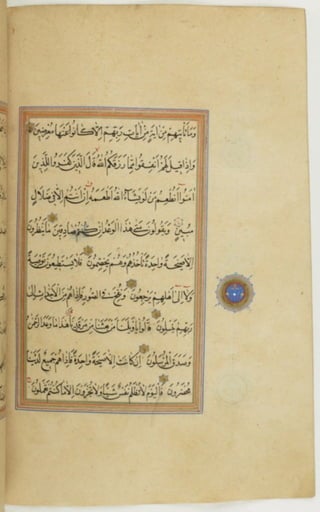 وما تأتيهم من آية من آيات ربهم إلا كانوا عنها معرضين
وإذا قيل لهم أنفقوا مما رزقكم الله قال الذين كفروا للذين
آمنوا أنطعم من لو يشاء الله أطعمه إن أنتم إلا في ضلال
مبين ويقولون متى هذا الوعد إن كنتم صادقين ما ينظرون
إلا صيحة واحدة تأخذهم وهم يخصمون فلا يستطيعون توصية
ولا إلى أهلهم يرجعون ونفخ في الصور فإذا هم من الأجداث إلى
ربهم ينسلون قالوا يا ويلنا من بعثنا من مرقدنا هذا ما وعد الرحمن
وصدق المرسلون إن كانت إلا صيحة واحدة فإذا هم جميع لدينا
محضرون فاليوم لا تظلم نفس شيئا ولا تجزون إلا ما كنتم تعملون